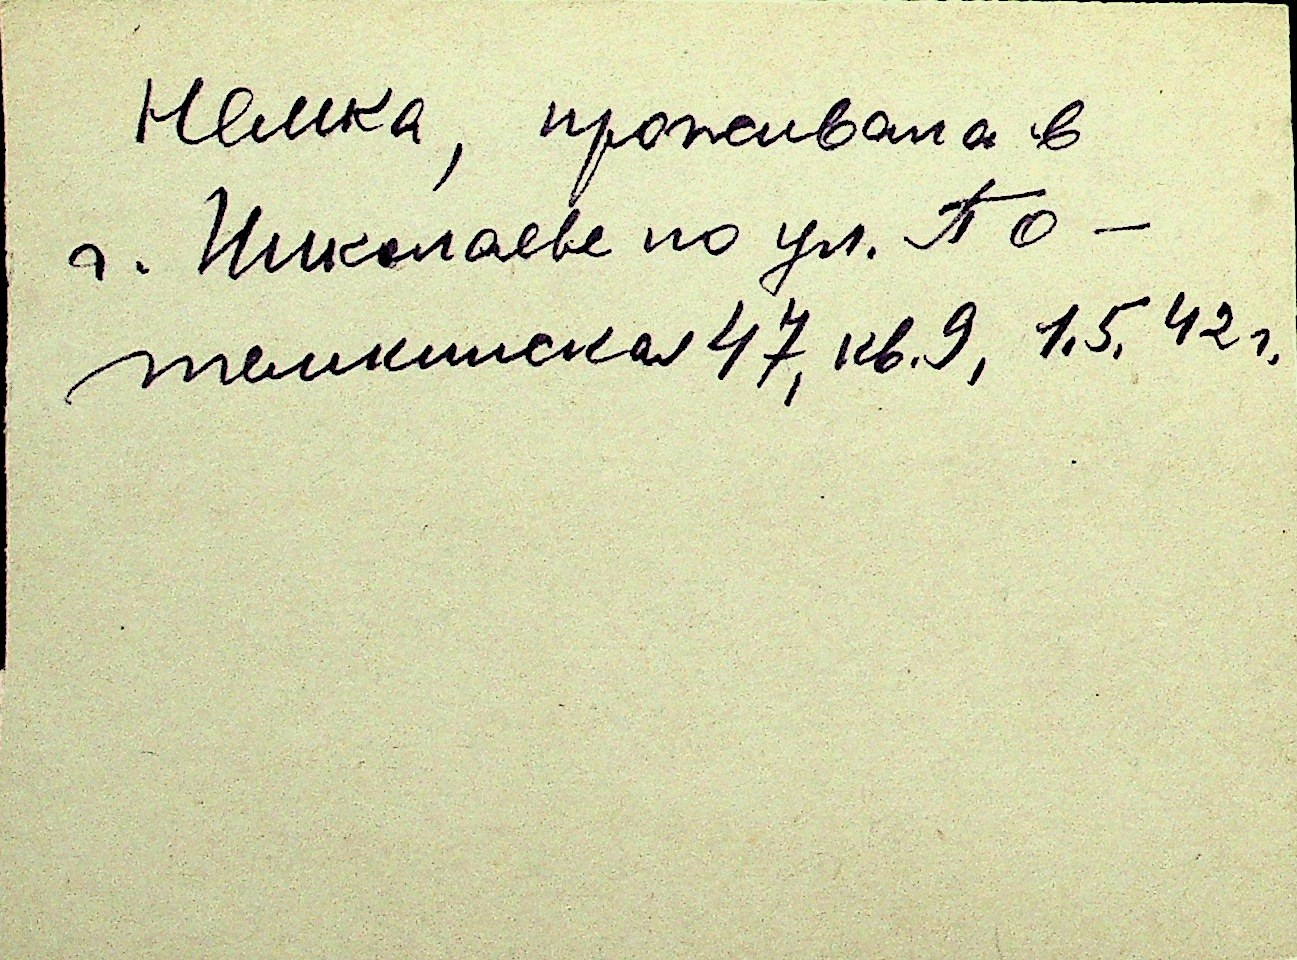 Немка, проживала в
г. Николаеве по ул. По-
темкинская 47, кв. 9, 1.5.42 г.